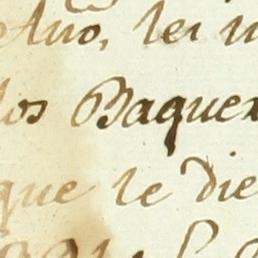 Año, lei
los Baquer
que le die